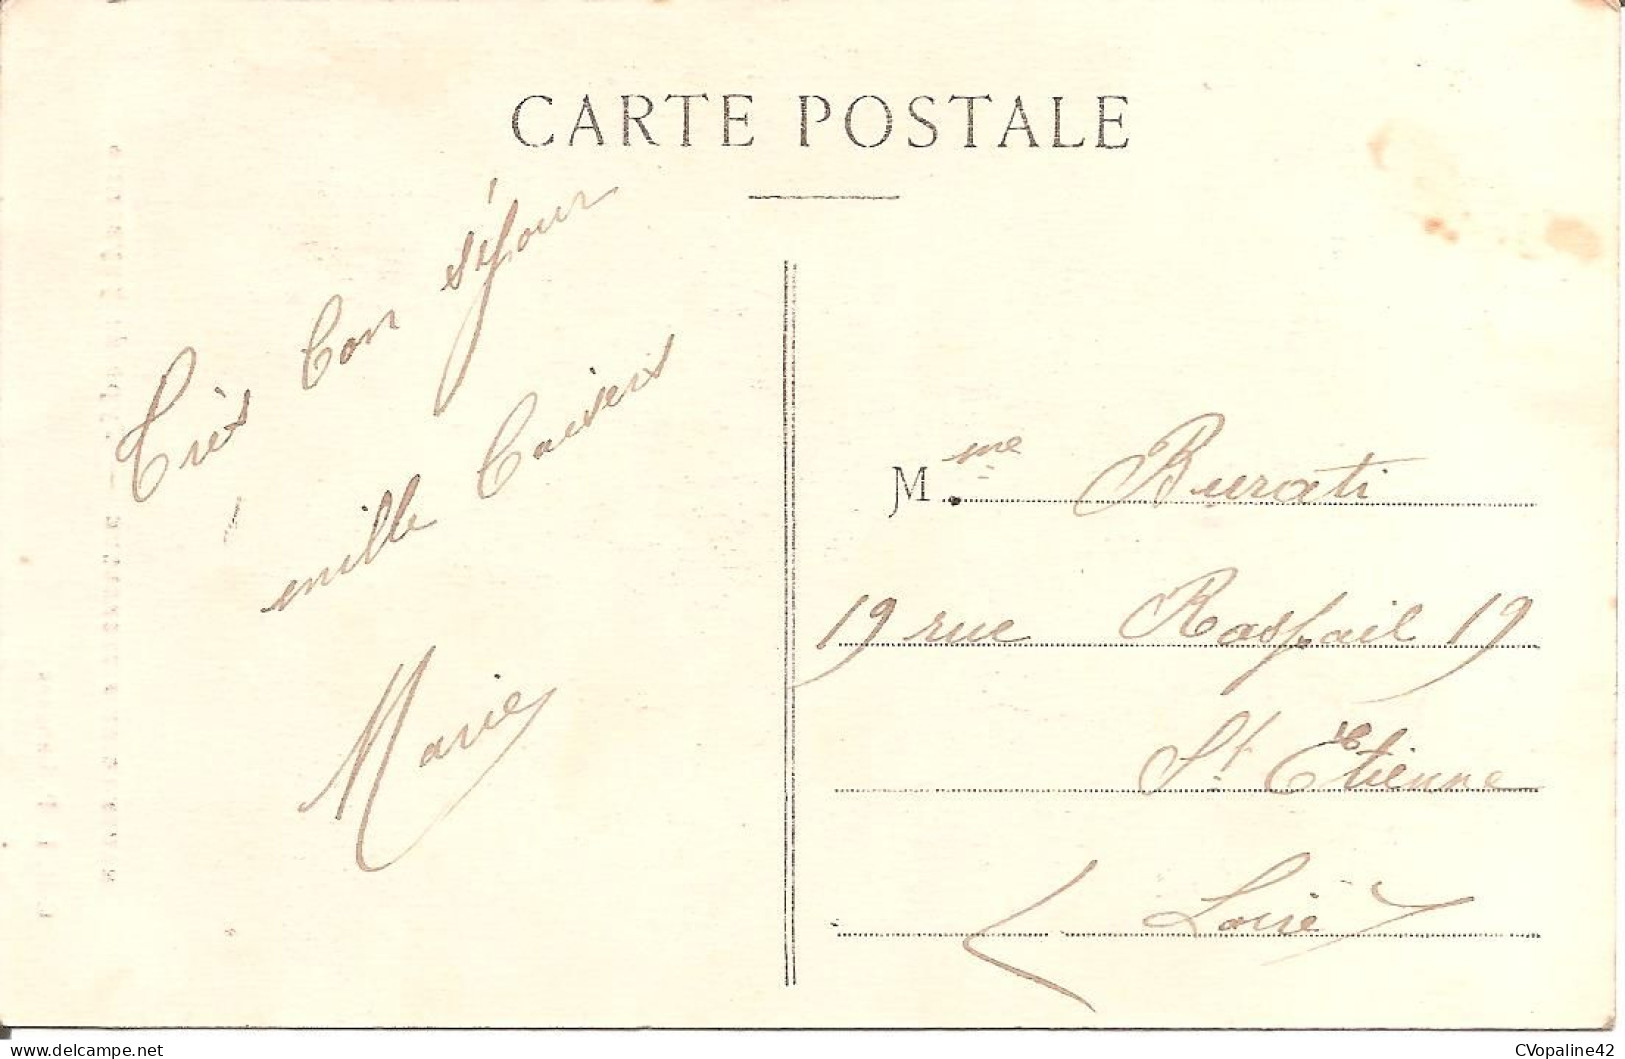 CARTE POSTALE
Très bon séjour
mille baisers
Marie
Mme Burati
19 rue Raspail 19
St Etienne
(Loire)
www.delcampe.net
CVopaline42